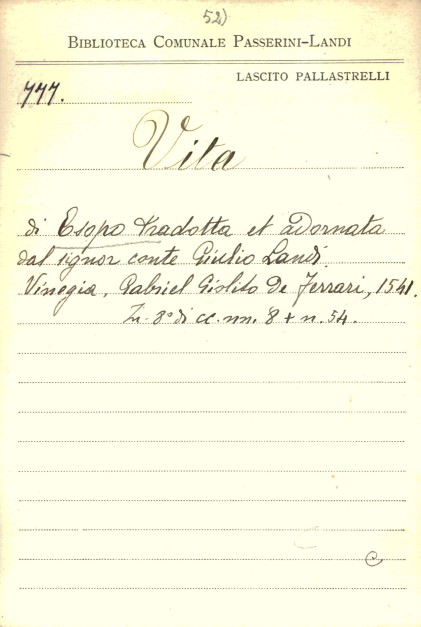 52)
BIBLIOTECA COMUNALE PASSERINI-LANDI
LASCITO PALLASTRELLI
777.
Vita
di Esopo tradotta et adornata
dal signor conte Giulio Landi.
Vinegia, Gabriel Giolito De Ferrari, 1541.
In-8° di cc. nn. 8 + n. 54.
C